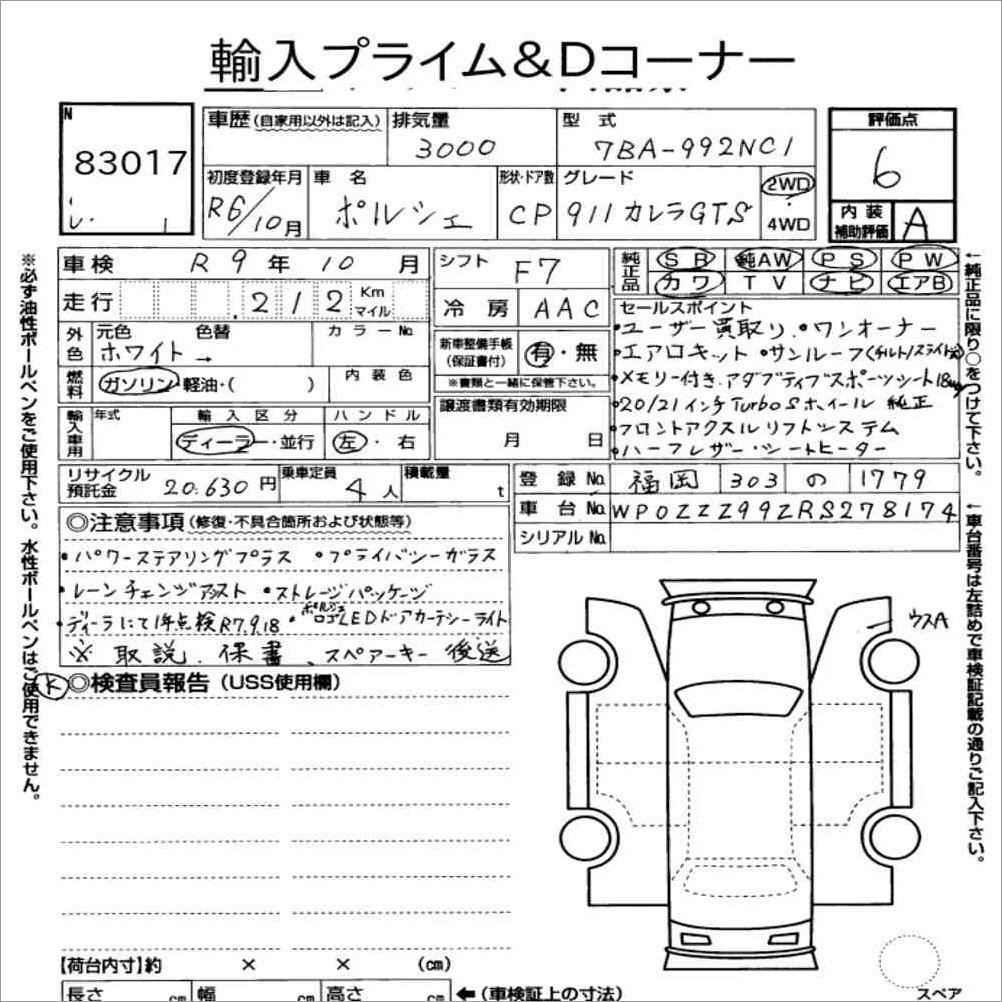 輸入プライム＆Dコーナー
N
83017
車歴 (自家用以外は記入)
排気量
3000
型式
7BA-992NC1
評価点
6
初度登録年月
R6/10月
車名
ポルシェ
形状・ドア数
CP
グレード
911カレラGTS
2WD
・
4WD
内装
補助評価
A
車検 R 9 年 10 月
シフト F7
純正品
SR 純AW PS PW
カワ TV ナビ エアB
走行 212 Km
マイル
冷房 AAC
セールスポイント
・ユーザー買取り ・ワンオーナー
・エアロキット ・サンルーフ(チルト/スライド式)
・メモリー付き アダプティブスポーツシート18way
・20/21インチTurboSホイール 純正
・フロントアクスルリフトシステム
・ハーフレザー・シートヒーター
外色
元色 色替
ホワイト→
カラーNo.
新車整備手帳
(保証書付)
有・無
※書類と一緒に保管下さい。
燃料
ガソリン・軽油・( )
内装色
譲渡書類有効期限
月 日
輸入車用
年式
輸入区分
ディーラー・並行
ハンドル
左・右
リサイクル
預託金 20.630円
乗車定員
4人
積載量
t
登録No. 福岡 303 の 1779
車台No. WP0ZZZ99ZRS278174
シリアルNo.
◎注意事項 (修復・不具合箇所および状態等)
・パワーステアリングプラス ・プライバシーガラス
・レーンチェンジアシスト ・ストレージパッケージ
・ディーラにて1年点検R7.9.18 ・ポルシェロゴLEDドアカーテシーライト
※ 取説、保書、スペアーキー 後送
K ◎検査員報告 (USS使用欄)
ウスA
【荷台内寸】約 × × (cm)
長さ cm 幅 cm 高さ cm ←(車検証上の寸法)
スペア
※必ず油性ボールペンをご使用下さい。水性ボールペンはご使用できません。
←純正品に限り○をつけて下さい。
←車台番号は左詰めで車検証記載の通りご記入下さい。